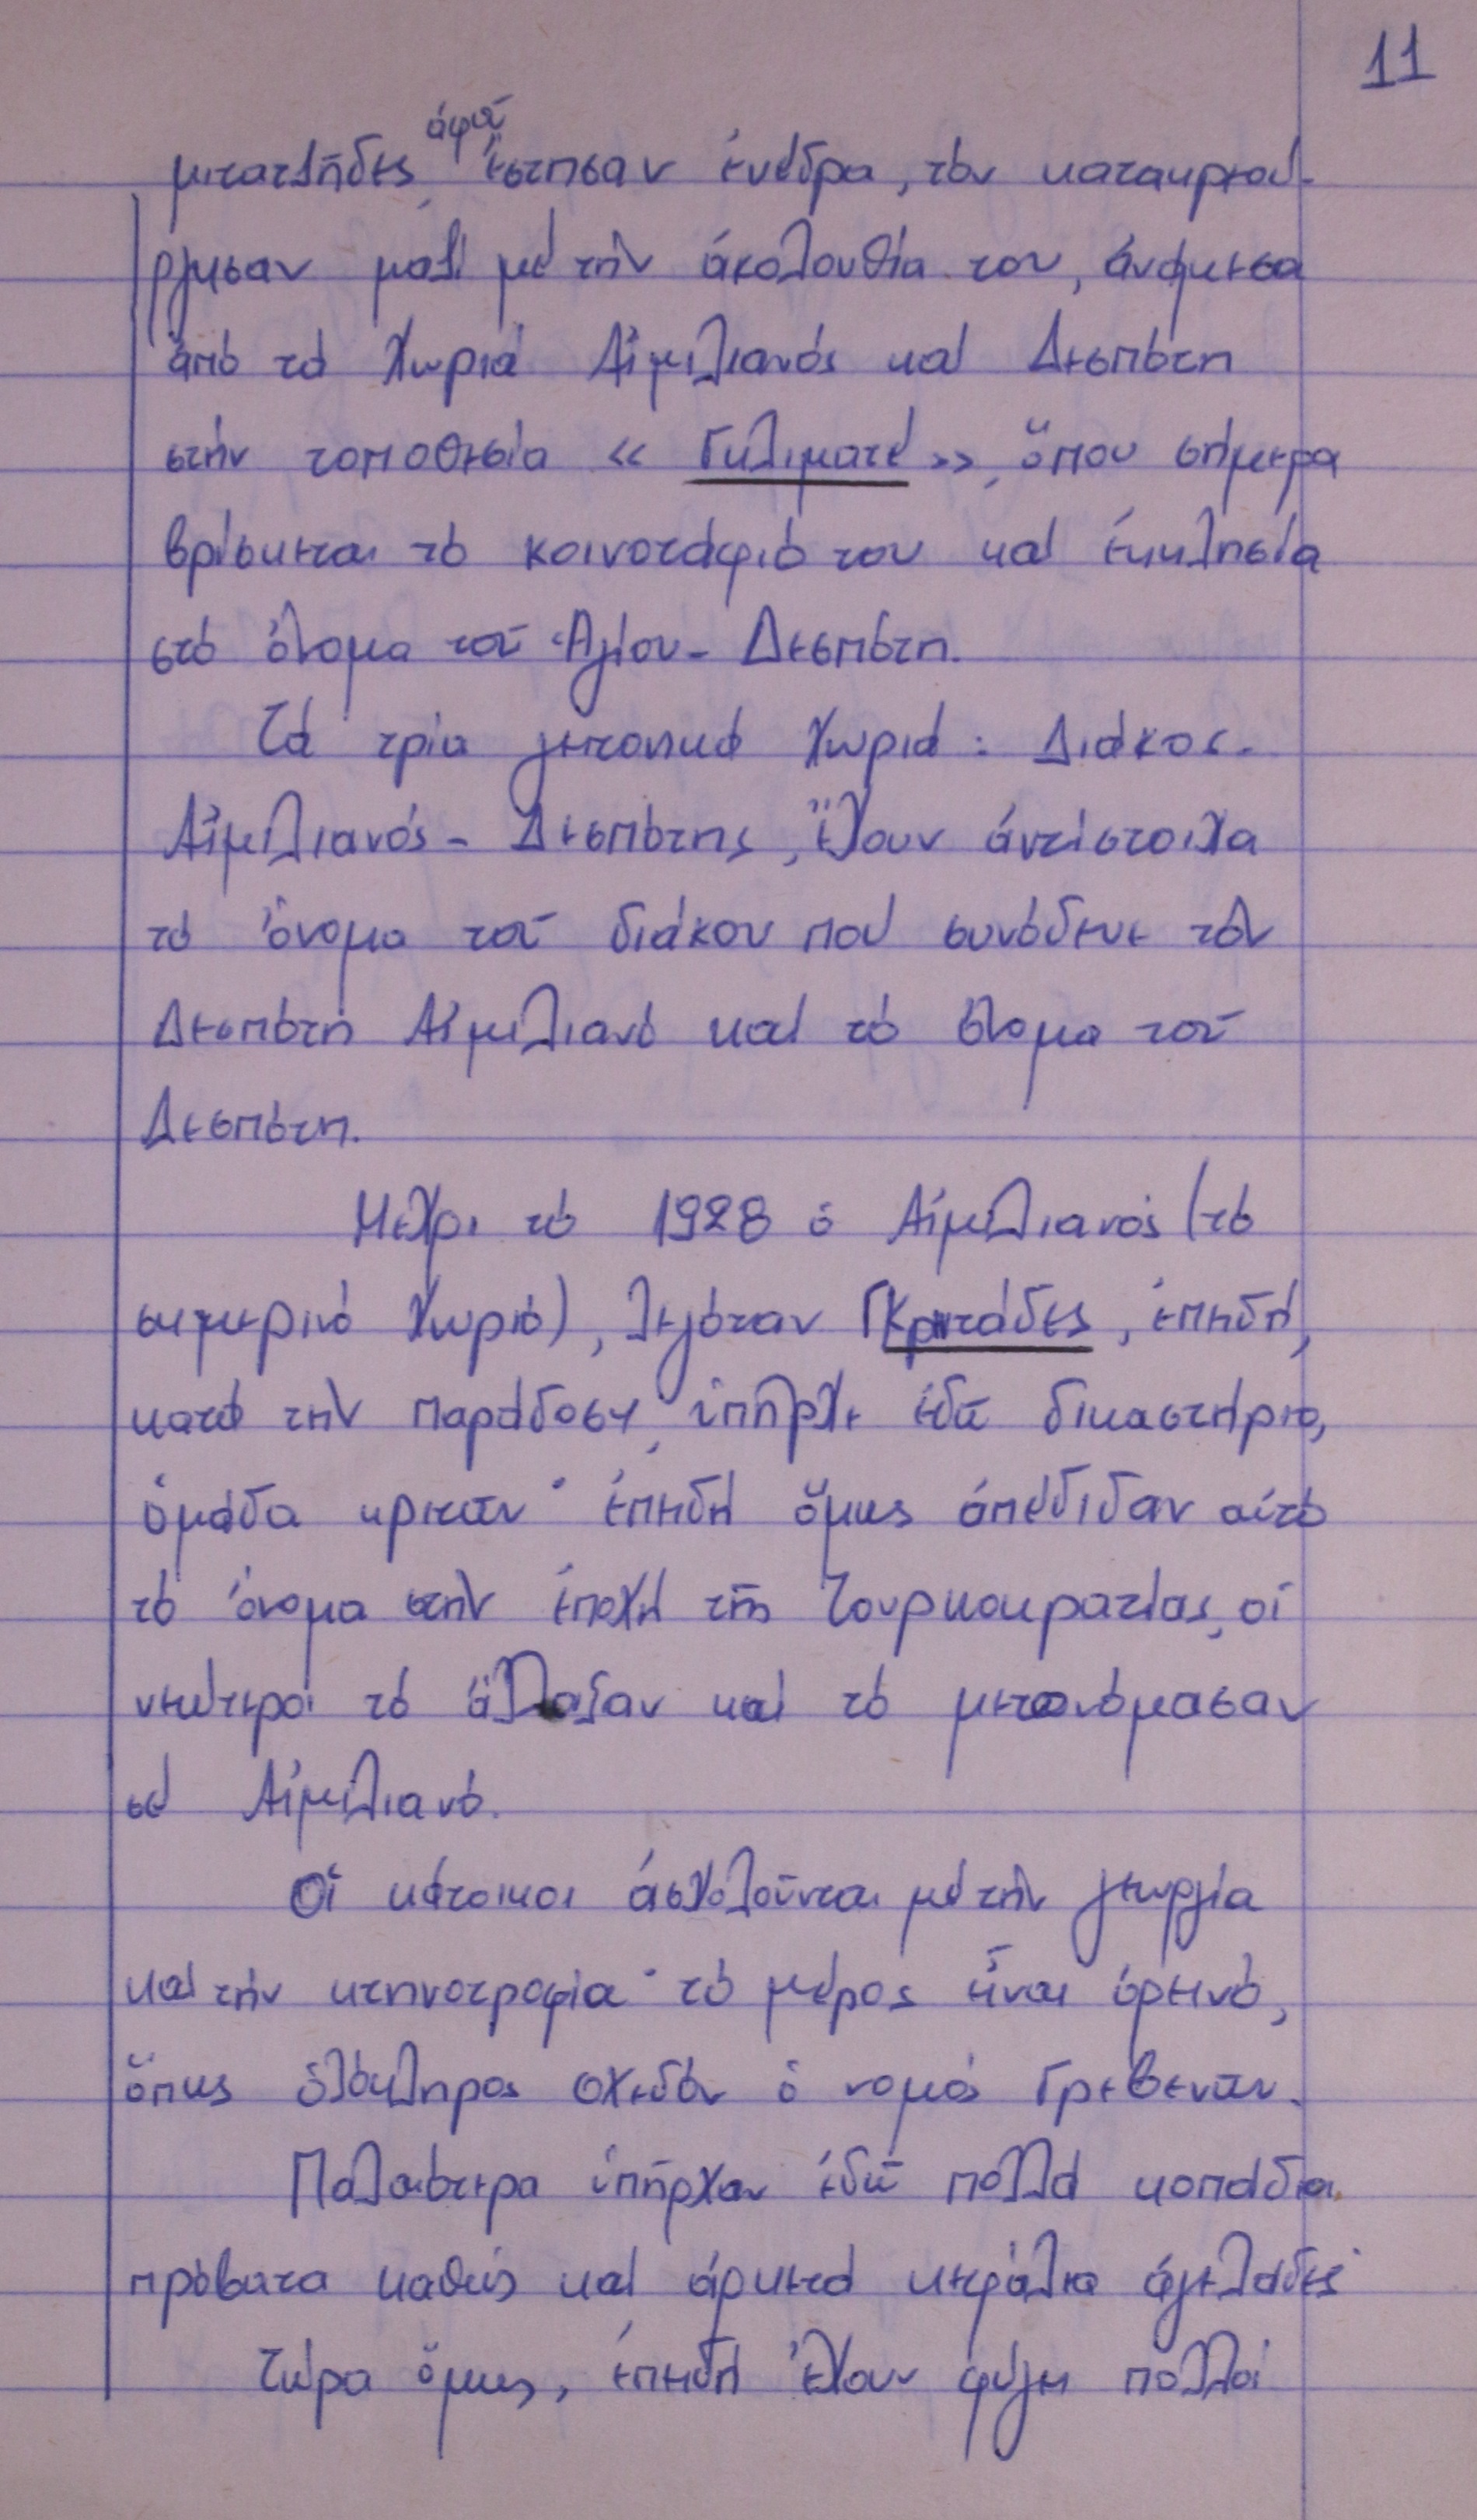 11
κομιτατζῆδες, ἀφοῦ ἔστησαν ἐνέδρα, τόν κατακρεού-
ργησαν μαζί μέ τήν ἀκολουθία του, ἀνάμεσα
ἀπό τά χωριά Αἰμιλιανός καί Δεσπότη
στήν τοποθεσία « Γκλιματέ », ὅπου σήμερα
βρίσκεται τό κοινοτάφιό του καί ἐκκλησία
στό ὄνομα τοῦ Ἁγίου - Δεσπότη.
Τά τρία γειτονικά χωριά: Διάκος -
Αἰμιλιανός - Δεσπότης, ἔχουν ἀντίστοιχα
τό ὄνομα τοῦ διάκου πού συνόδευε τόν
Δεσπότη Αἰμιλιανό καί τό ὄνομα τοῦ
Δεσπότη.
Μέχρι τό 1928 ὁ Αἰμιλιανός (τό
σημερινό χωριό), λεγόταν Γκριτάδες, ἐπειδή,
κατά τήν παράδοση, ὑπῆρχε ἐδῶ δικαστήριο,
ὁμάδα κριτῶν · ἐπειδή ὅμως ἀπέδιδαν αὐτό
τό ὄνομα στήν ἐποχή τῆς Τουρκοκρατίας, οἱ
νεώτεροι τό ἄλλαξαν καί τό μετονόμασαν
σέ Αἰμιλιανό.
Οἱ κάτοικοι ἀσχολοῦνται μέ τήν γεωργία
καί τήν κτηνοτροφία · τό μέρος εἶναι ὀρεινό,
ὅπως ὁλόκληρος σχεδόν ὁ νομός Γρεβενῶν.
Παλαιότερα ὑπῆρχαν ἐδῶ πολλά κοπάδια
πρόβατα καθώς καί ἀρκετά κεφάλια ἀγελάδες ·
Τώρα ὅμως, ἐπειδή ἔχουν φύγει πολλοί